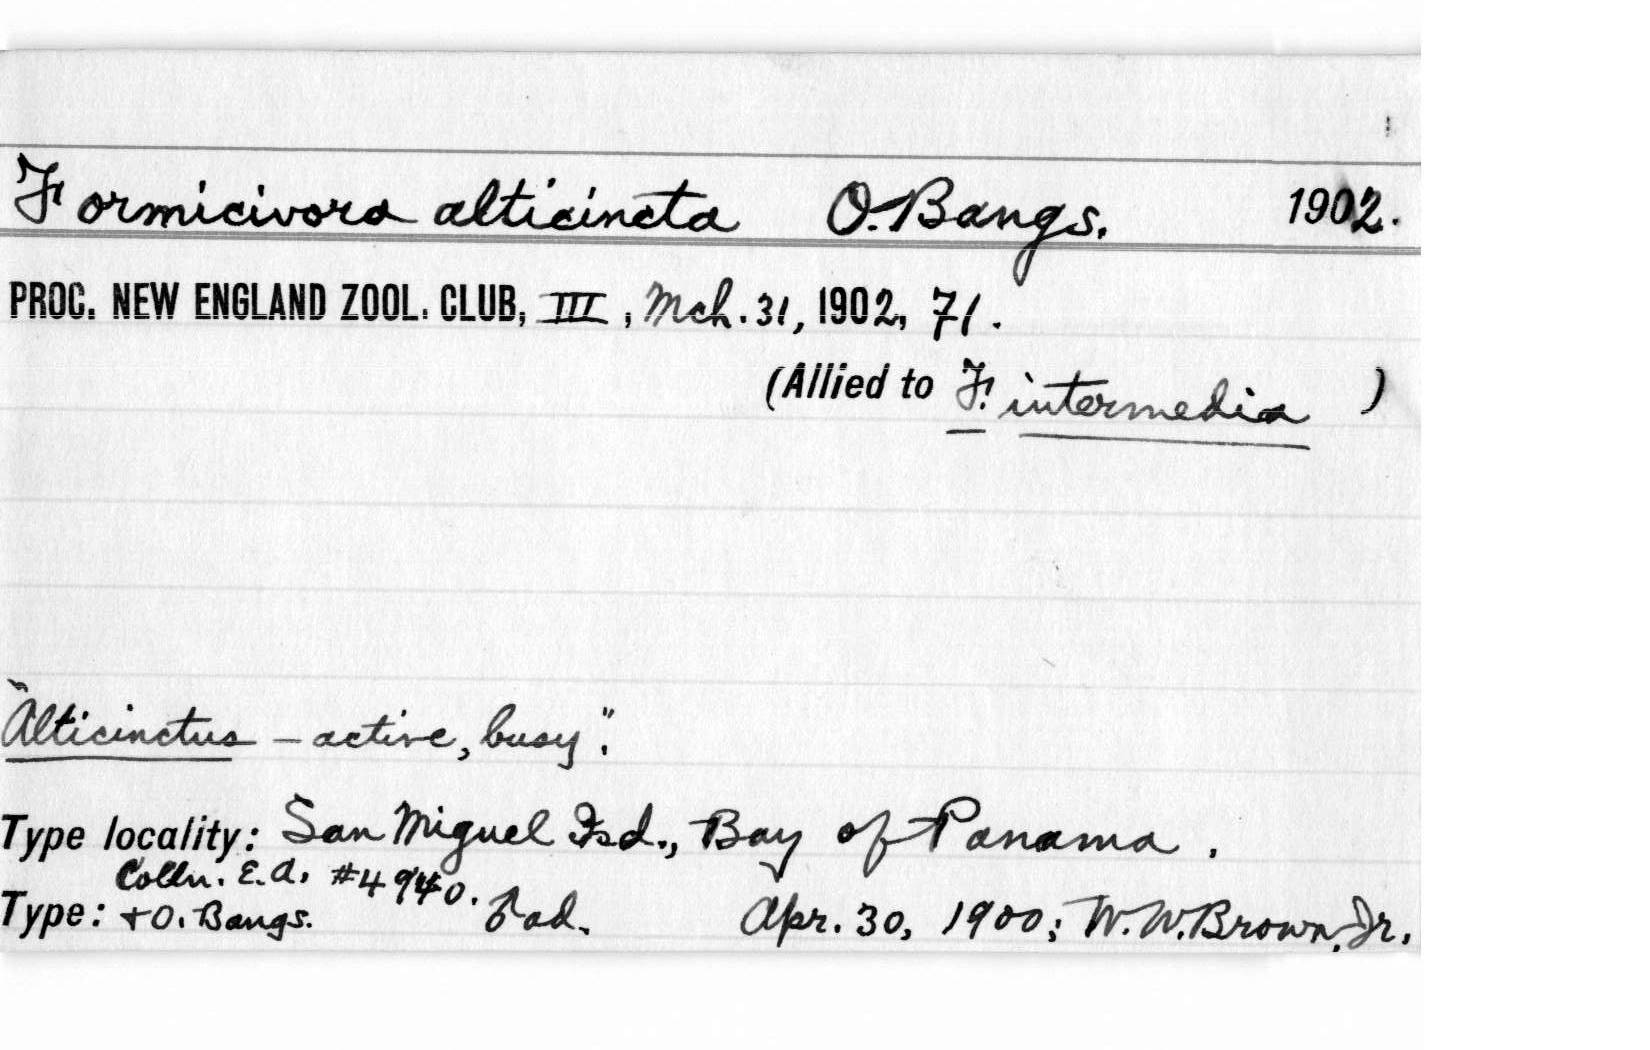 Formicivora alticincta O. Bangs. 1902.
PROC. NEW ENGLAND ZOOL. CLUB, III, Mch. 31, 1902, 71.
(Allied to F. intermedia )
"Alticinctus – active, busy".
Type locality: San Miguel Isd., Bay of Panama.
Colln. E.A. #4940.
Type: + O. Bangs. ♂ ad. Apr. 30, 1900; W. W. Brown, Jr.